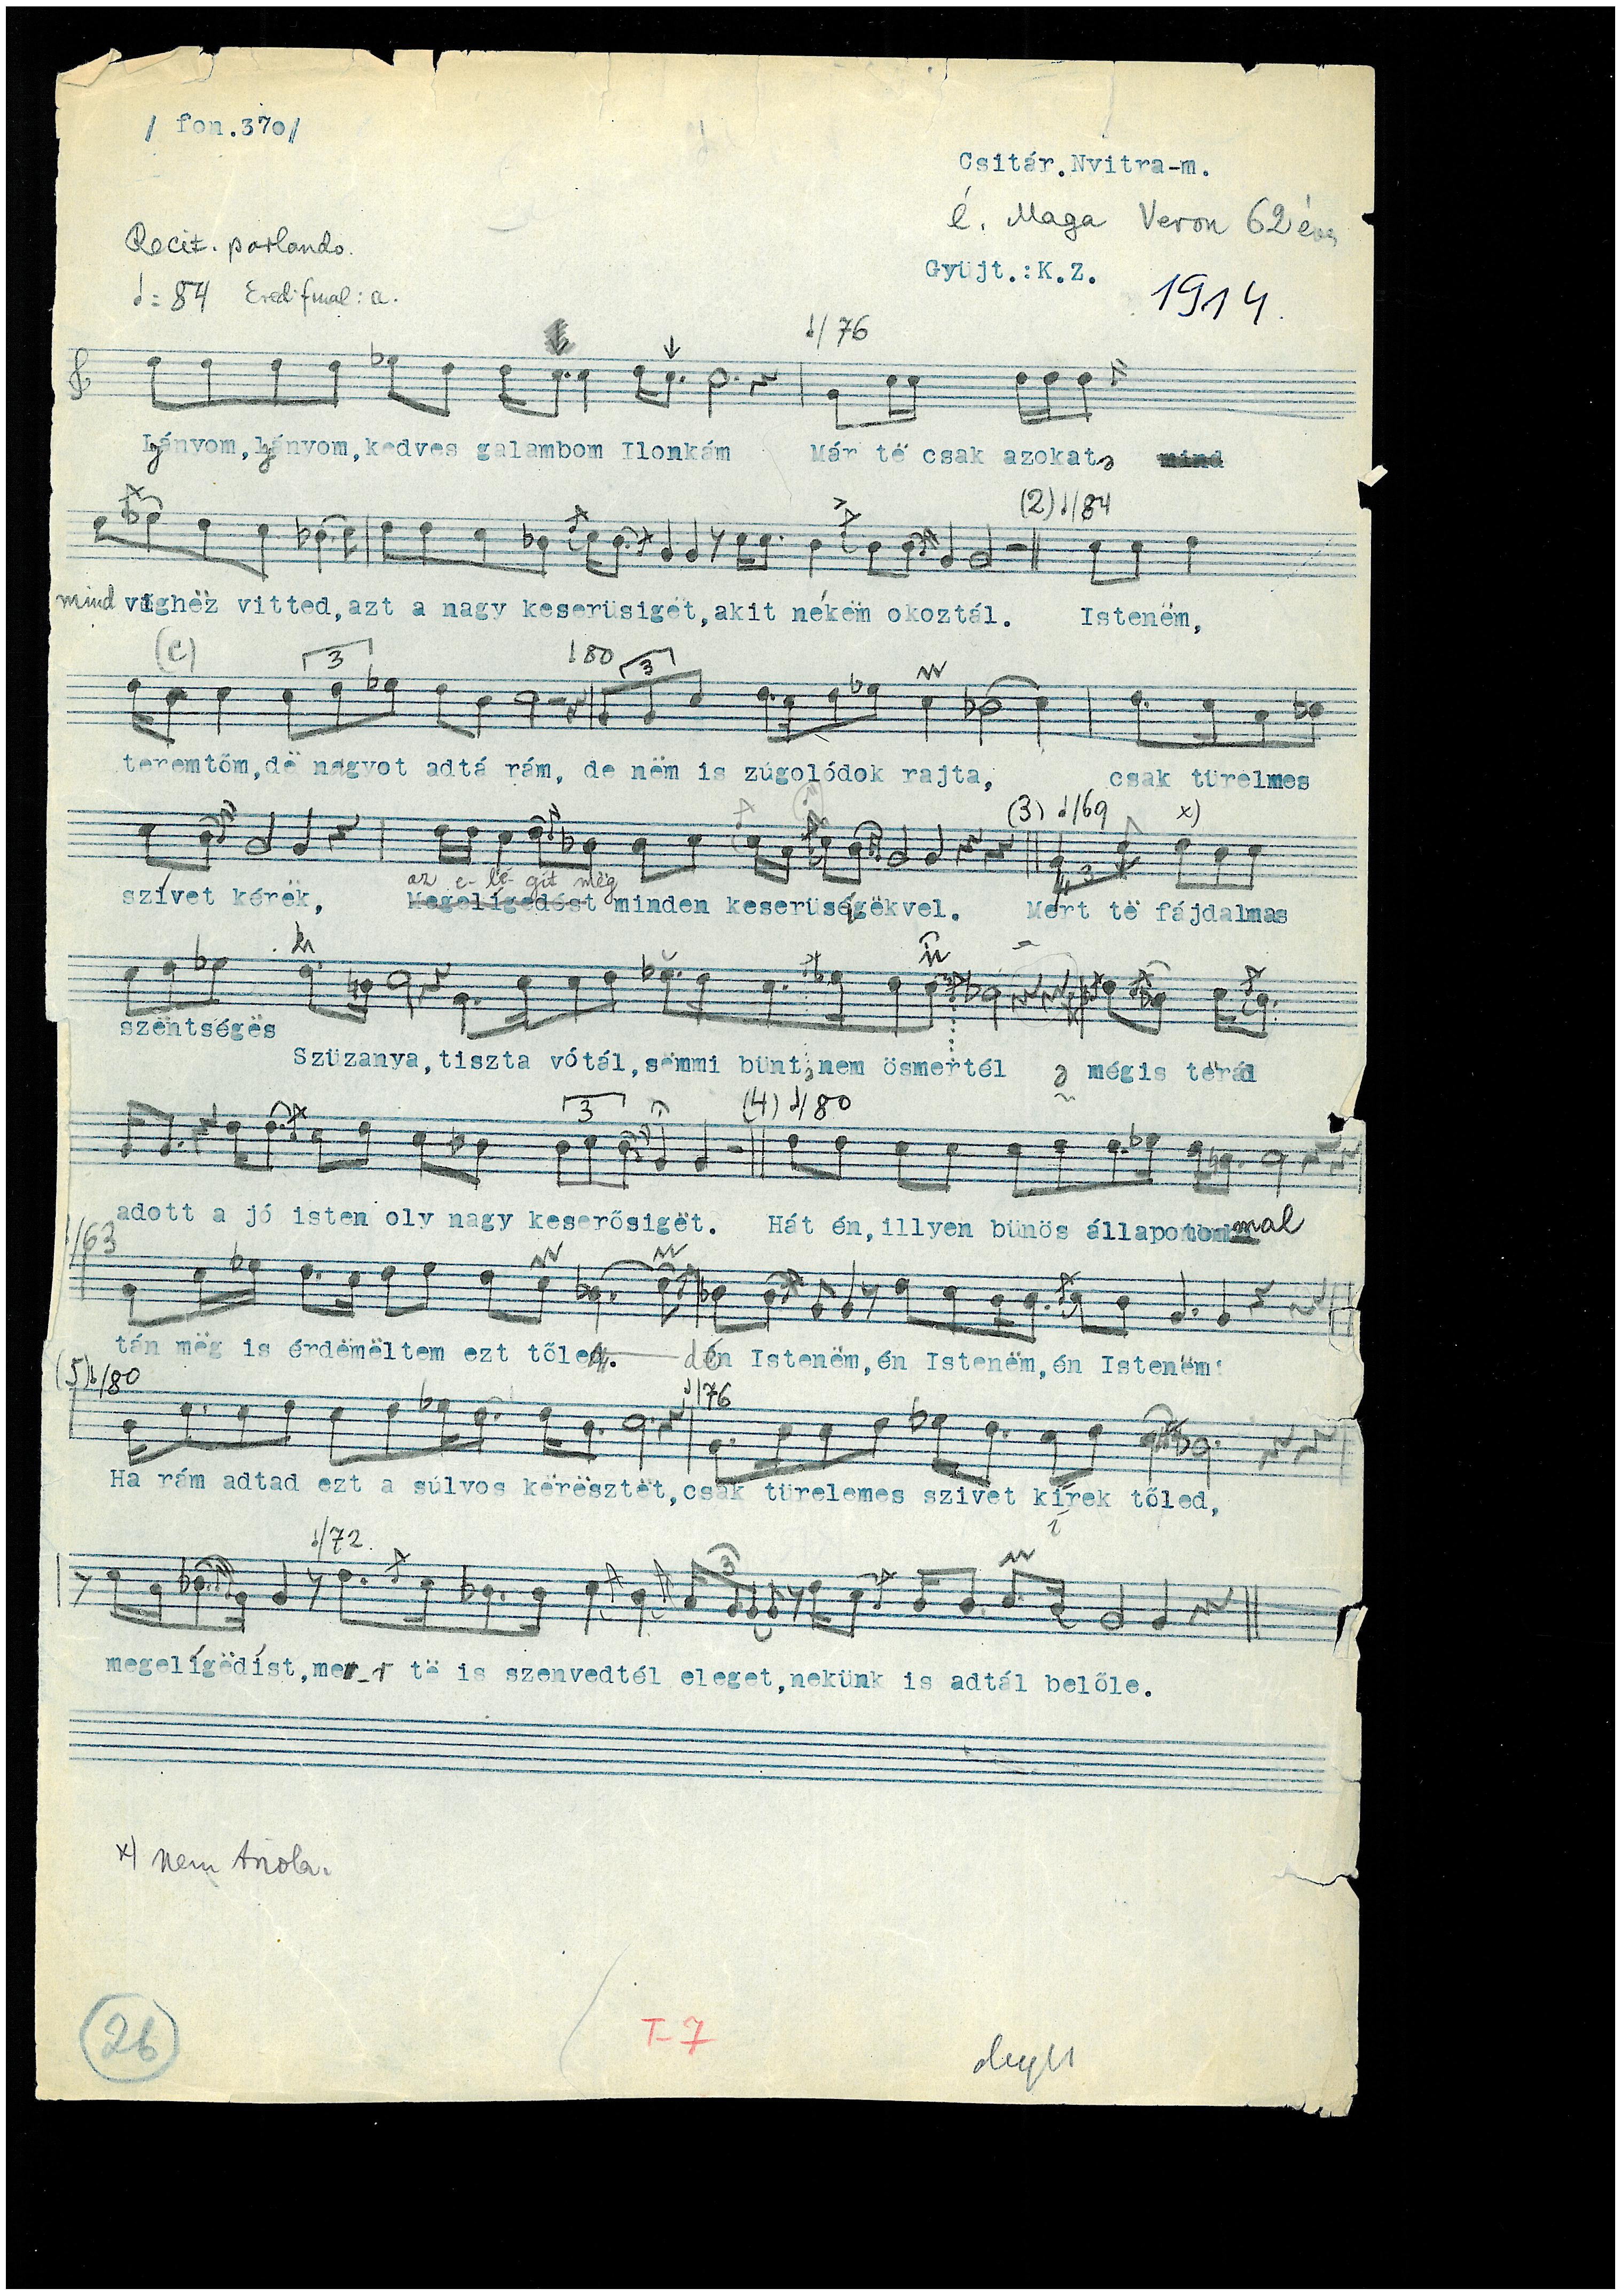 / fon.370/
Csitár.Nyitra-m.
é. Maga Veron 62 éves
Recit. parlando.
Gyüjt.:K.Z.
♩= 84 Ered. final: a.
1914.
♩/76
Lányom, lányom,kedves galambom Ilonkám Már të csak azokat
(2) ♩/84
mind víghëz vitted,azt a nagy keserüsigët,akit nékëm okoztál. Istenëm,
(c) 3 ♩80 3
teremtőm,dë nagyot adtá rám, de nëm is zúgolódok rajta, csak türelmes
(3) ♩/69 x)
az e- lé- git mëg
szívet kérëk, Megelígedést minden keserüségëkvel. Mert të fájdalmas
3
szëntségës
Szüzanya,tiszta vótál,sëmmi bünt nem ösmertél ə mégis tërád
3 (4) ♩/80
adott a jó isten oly nagy keserősigët. Hát én,illyen bünös állapotommal
♩/63
tán mëg is érdëmëltem ezt tőled. én Istenëm,én Istenëm,én Istenëm!
(5) ♩/80 ♩/76
Ha rám adtad ezt a súlyos kërësztët,csak türelemes szivet kírek tőled,
í
♩/72. 3
megelígëdíst,mer-t të is szenvedtél eleget,nekünk is adtál belőle.
x) nem triola.
26
T-7